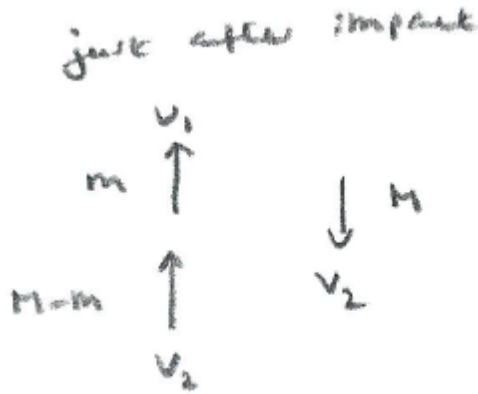 just after impact
v₁
m
M
v₂
M-m
v₂